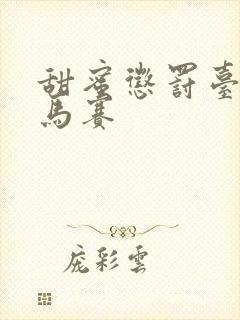 甜蜜懲罰臺
馬賽
龐彩雲